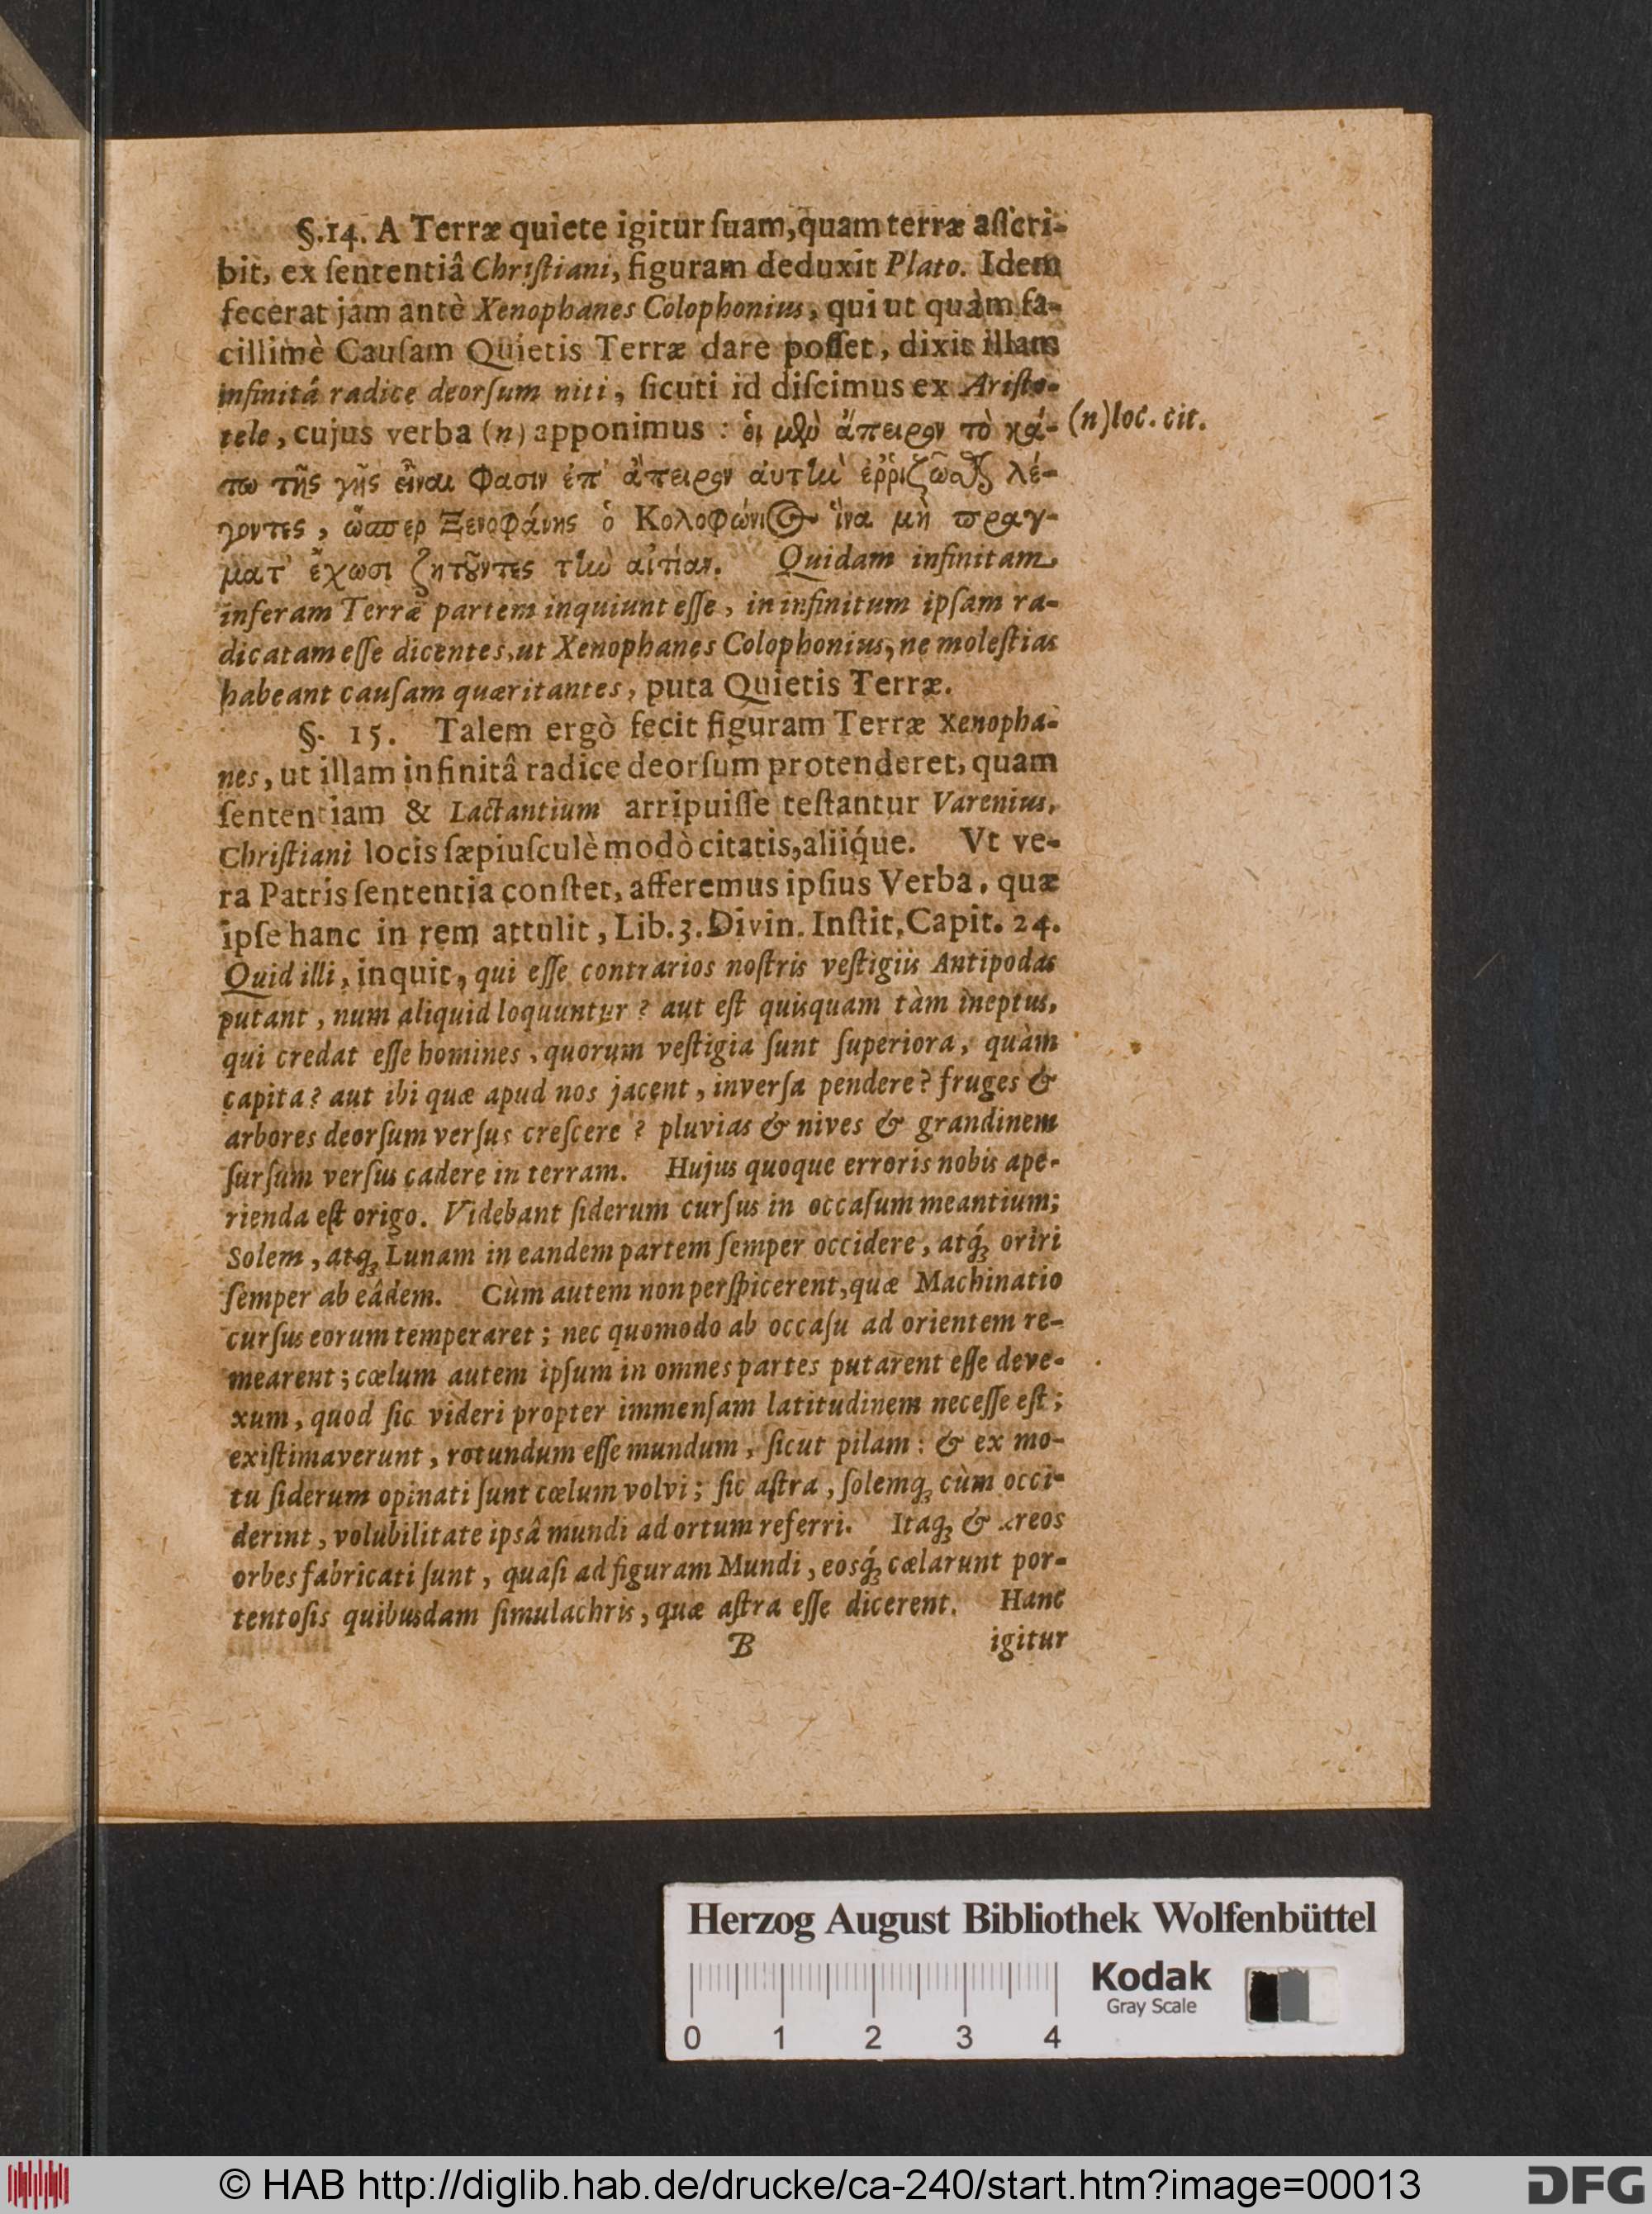 §.14. A Terræ quiete igitur ſuam, quam terræ aſſcri-
bit, ex ſententiâ Chriſtiani, figuram deduxit Plato. Idem
fecerat jam antè Xenophanes Colophonius, qui ut quàm fa-
cillimè Cauſam Quietis Terræ dare poſſet, dixit illam
infinitâ radice deorſum niti, ſicuti id diſcimus ex Ariſto-
tele, cujus verba (n) apponimus : ὁι μὲν ἄπειρον τὸ κά-
(n) loc. cit.
τω τῆς γῆς εἶναι φασιν ἐπ' ἄπειρον ἀυτὴν ἐῤῥιζῶσθαι λέ-
γοντες, ὥσπερ Ξενοφάνης ὁ Κολοφώνιος ἵνα μὴ πραγ-
ματ' ἔχωσι ζητοῦντες τὴν αἰτίαν. Quidam infinitam
inferam Terræ partem inquiunt eſſe, in infinitum ipſam ra-
dicatam eſſe dicentes, ut Xenophanes Colophonius, ne moleſtias
habeant cauſam quæritantes, puta Quietis Terræ.
§. 15. Talem ergò fecit figuram Terræ Xenopha-
nes, ut illam infinitâ radice deorſum protenderet, quam
ſententiam & Lactantium arripuiſſe teſtantur Varenius,
Chriſtiani locis ſæpiuſculè modò citatis, aliiq́ue. Vt ve-
ra Patris ſententia conſtet, afferemus ipſius Verba, quæ
ipſe hanc in rem attulit, Lib. 3. Divin. Inſtit. Capit. 24.
Quid illi, inquit, qui eſſe contrarios noſtris veſtigiis Antipodas
putant, num aliquid loquuntur? aut eſt quisquam tàm ineptus,
qui credat eſſe homines, quorum veſtigia ſunt ſuperiora, quàm
capita? aut ibi quæ apud nos jacent, inverſa pendere? fruges &
arbores deorſum verſus creſcere? pluvias & nives & grandinem
ſurſum verſus cadere in terram. Hujus quoque erroris nobis ape-
rienda eſt origo. Videbant ſiderum curſus in occaſum meantium;
Solem, atq; Lunam in eandem partem ſemper occidere, atq́; oriri
ſemper ab eâdem. Cùm autem non perſpicerent, quæ Machinatio
curſus eorum temperaret; nec quomodo ab occaſu ad orientem re-
mearent; cœlum autem ipſum in omnes partes putarent eſſe deve-
xum, quod ſic videri propter immenſam latitudinem neceſſe eſt;
exiſtimaverunt, rotundum eſſe mundum, ſicut pilam: & ex mo-
tu ſiderum opinati ſunt cœlum volvi; ſic aſtra, ſolemq; cùm occi-
derint, volubilitate ipsâ mundi ad ortum referri. Itaq; & æreos
orbes fabricati ſunt, quaſi ad figuram Mundi, eosq́; cælarunt por-
tentoſis quibusdam ſimulachris, quæ aſtra eſſe dicerent. Hanc
B igitur
Herzog August Bibliothek Wolfenbüttel
Kodak
Gray Scale
0 1 2 3 4
© HAB http://diglib.hab.de/drucke/ca-240/start.htm?image=00013
DFG